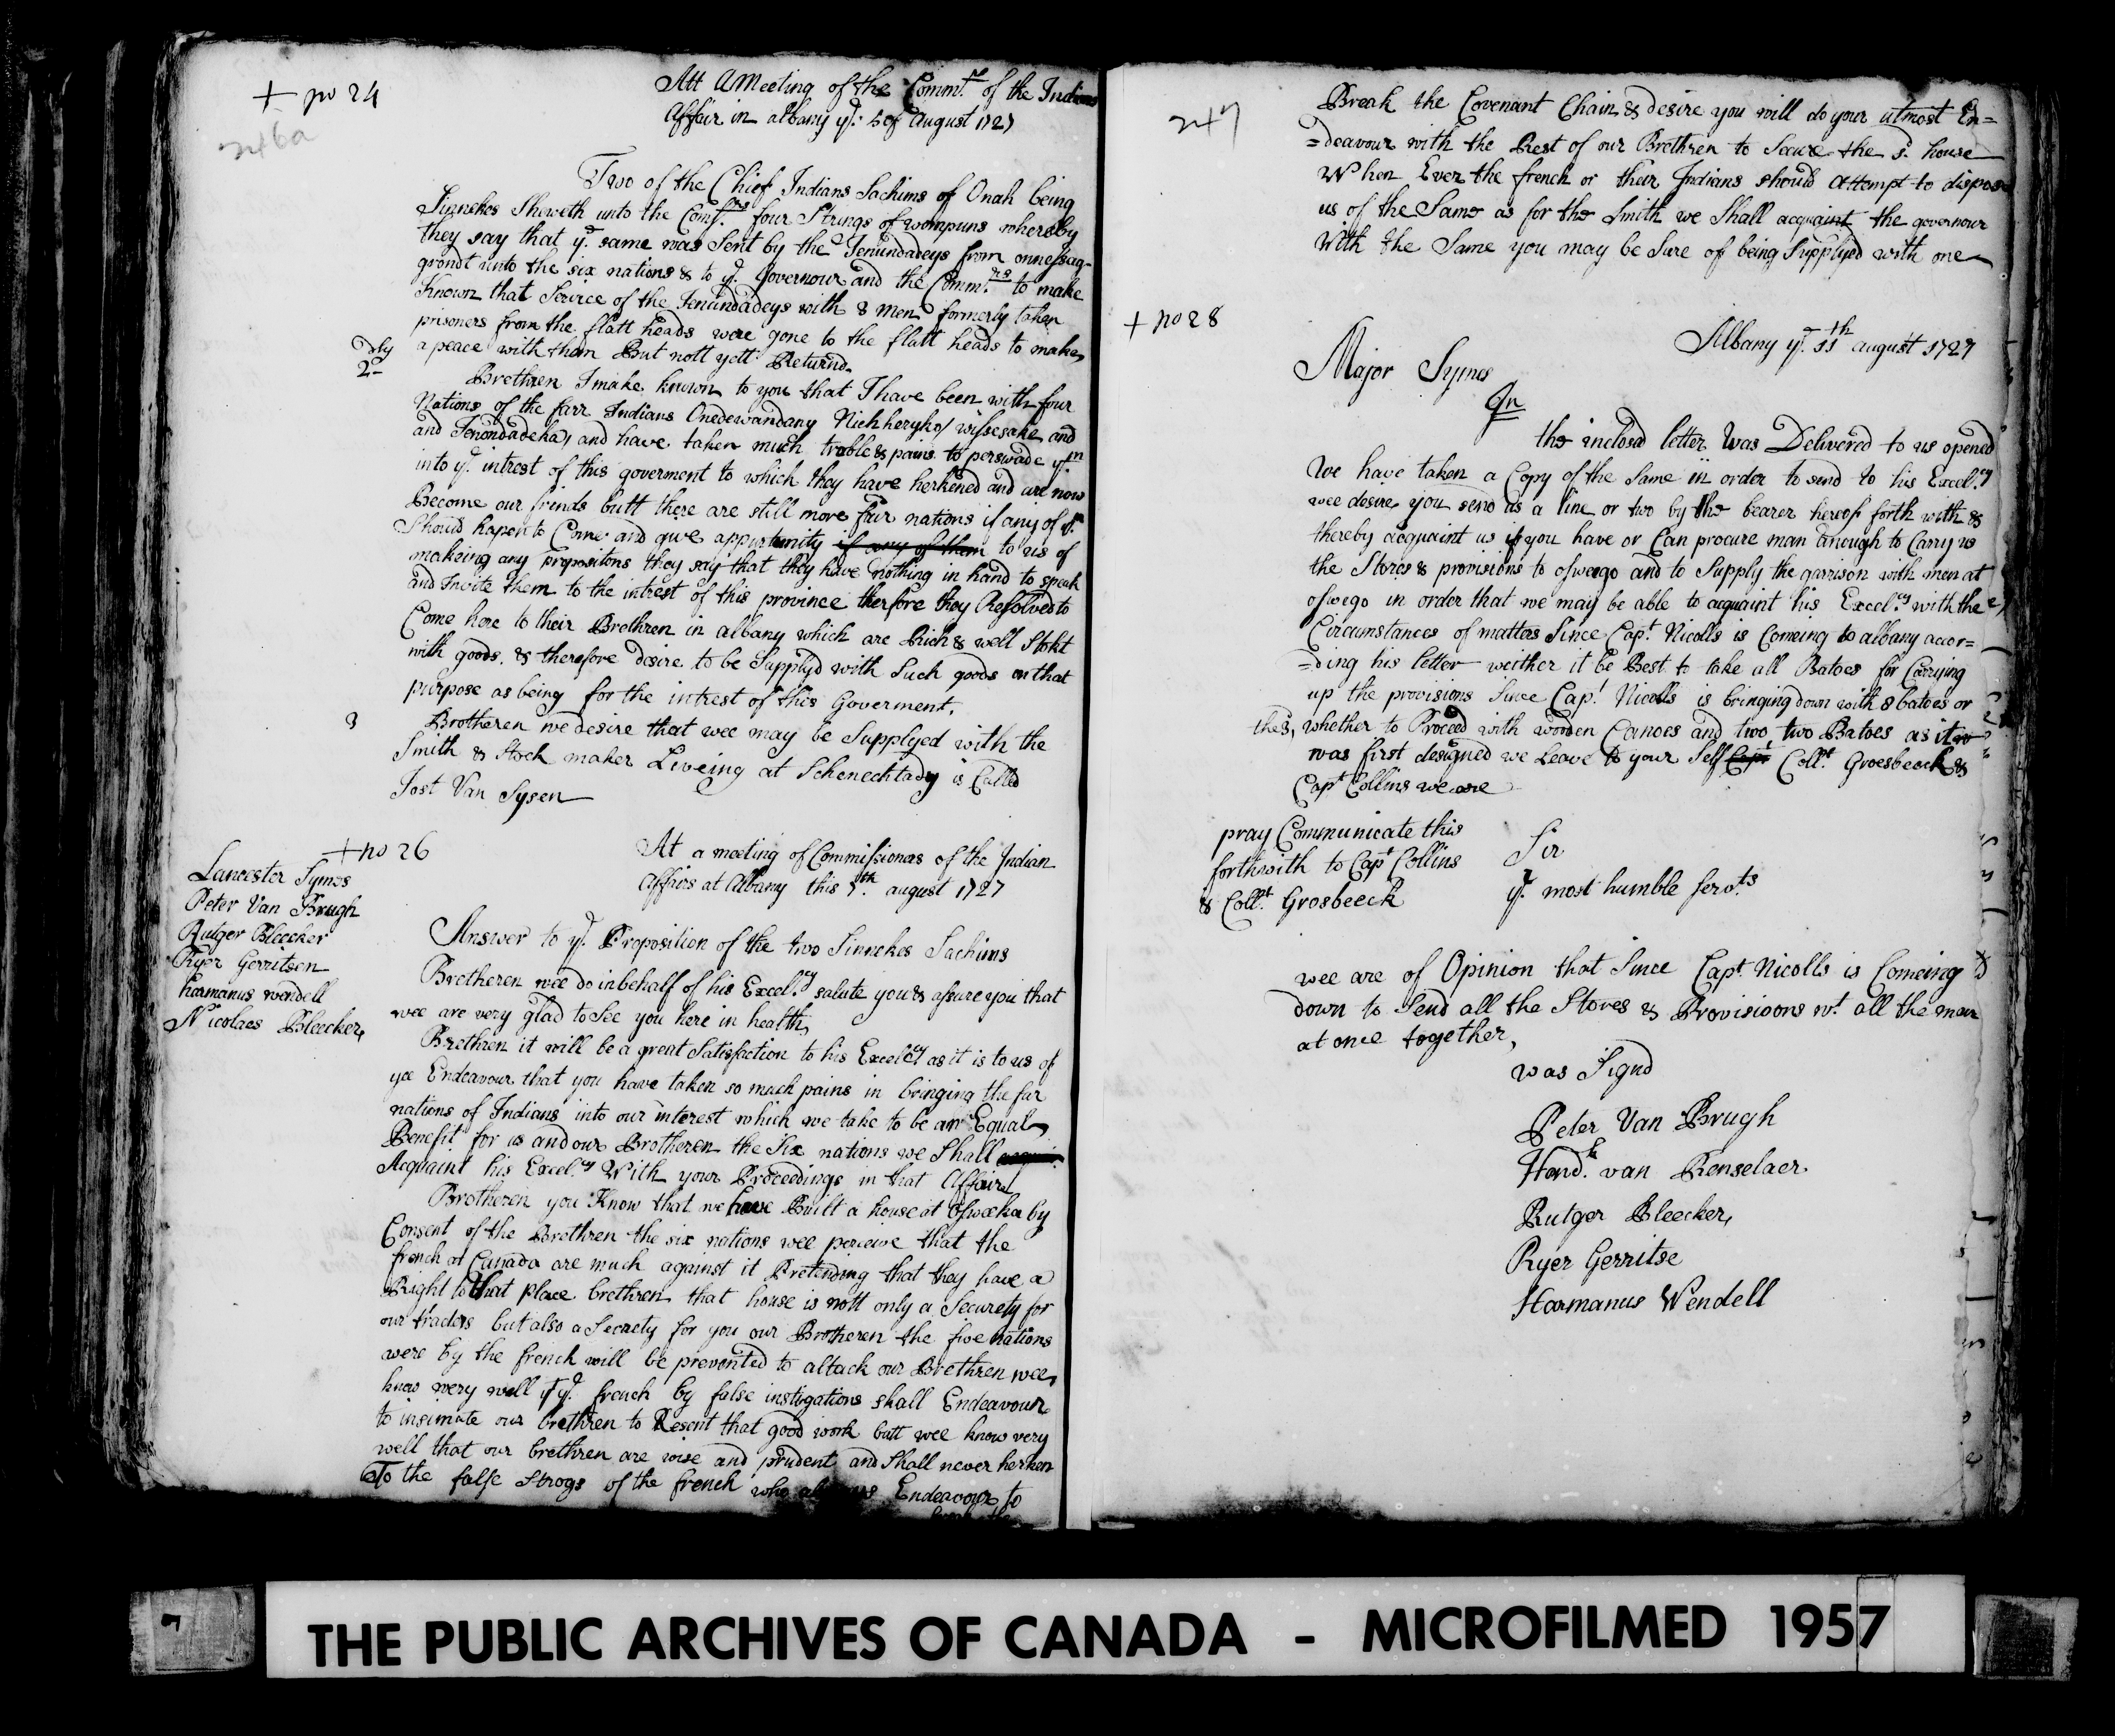 + no 24
246a
Att A Meeting of the Comm.rs of the Indians
Affair in albany ye. 5 of August 1727
Two of the Chief Indians Sachims of Onah being
Sinnekes Sheweth unto the Com.rs four Strings of wompuns whereby
they say that ye. same was Sent by the Jenundadeys from onnessag-
grondt unto the six nations & to ye. Governour and the Comm.rs to make
Known that Service of the Jenundadeys with 8 men formerly taken
prisoners from the flatt heads were gone to the flatt heads to make
a peace with them But nott yett Returnd.
2dly
Brethren I make known to you that I have been with four
Nations of the farr Indians Onedewandany Nichheryko wissesake and
and Jenondadeka, and have taken much troble & pains to perswade ym
into ye. intrest of this goverment to which they have herkened and are now
Become our frinds butt there are still more farr nations if any of ym
Should hapen to Come and give appurtunity if any of them to us of
makeing any propositons they say that they have nothing in hand to speak
and Invite them to the intrest of this province therfore they Resolved to
Come here to their Brethren in albany which are Rich & well Stokt
with goods. & therefore desire to be Supplyd with Such goods on that
purpose as being for the intrest of this Goverment.
3
Brotheren we desire that wee may be Supplyed with the
Smith & Stock maker Liveing at Schenechtady is Called
Jost Van Sysen
+ no 26
At a meeting of Commissioners of the Indian
Affairs at Albany this 7th. august 1727
Lancester Symes
Peter Van Brugh
Rutger Bleecker
Ryer Gerritsen
harmanus wendell
Nicolaes Bleecker,
Answer to ye. Proposition of the two Sinnekes Sachims
Bretheren wee do inbehalf of his Excel.cy salute you & assure you that
wee are very glad to See you here in health,
Brethren it will be a great Satisfaction to his Excel.cy as it is to us of
yee Endeavour that you have taken so much pains in bringing the far
nations of Indians into our interest which we take to be an Equal
Benefit for us and our Brotheren the Six nations we Shall
Acquaint his Excel.cy With your Proceedings in that Affair
Brotheren you Know that we have Built a house at Osweeka by
Consent of the Brethren the six nations wee perceive that the
french at Canada are much against it Pretending that they have a
Right to that place brethren that house is nott only a Securety for
our traders but also a Securety for you our Brotheren the five nations
were by the french will be prevented to attack our Brethren wee,
know very well if ye. french by false instigations shall Endeavour
to insimate our brethren to Resent that good work butt wee know very
well that our brethren are wise and prudent and Shall never herken
To the false Strogs of the french who always Endeavour to
break the
247
Break the Covenant Chain & desire you will do your utmost En=
=deavour with the Rest of our Brethren to Secure the sd. house
When Ever the french or their Indians should Attempt to dispose
us of the Same as for the Smith we Shall acquaint the governour
With the Same you may be Sure of being Supplyed with one
+ no 28
Albany ye. 11th august 1727
Major Symes
Sr
the inclosd letter Was Delivered to us opened
We have taken a Copy of the Same in order to send to his Excel.cy
wee desire you send us a line or two by the bearer hereof forth with &
thereby acquaint us if you have or Can procure man Enough to Carry us
the Stores & provisions to oswego and to Supply the garrison with men at
oswego in order that we may be able to acquaint his Excel.cy with the
Circumstances of matters Since Capt. Nicolls is Comeing to albany accor=
=ding his letter weither it be Best to take all Batoes for Carrying
up the provisions Since Capt. Nicolls is bringing down with 8 batoes or
thes, whether to Proceed with wooden Canoes and two, two Batoes as it
was first designed we Leave to your Self Capt Coll.l Groesbeeck &
Capt Collins we are
pray Communicate this
forthwith to Capt Collins
& Coll.l Grosbeeck
Sir
yr. most humble servts
wee are of Opinion that Since Capt. Nicolls is Comeing
down to Send all the Stores & Provisioons wt. all the men
at once together,
was Signd
Peter Van Brugh
Hend.k van Renselaer
Rutger Bleecker,
Ryer Gerritse
Harmanus Wendell
THE PUBLIC ARCHIVES OF CANADA - MICROFILMED 1957